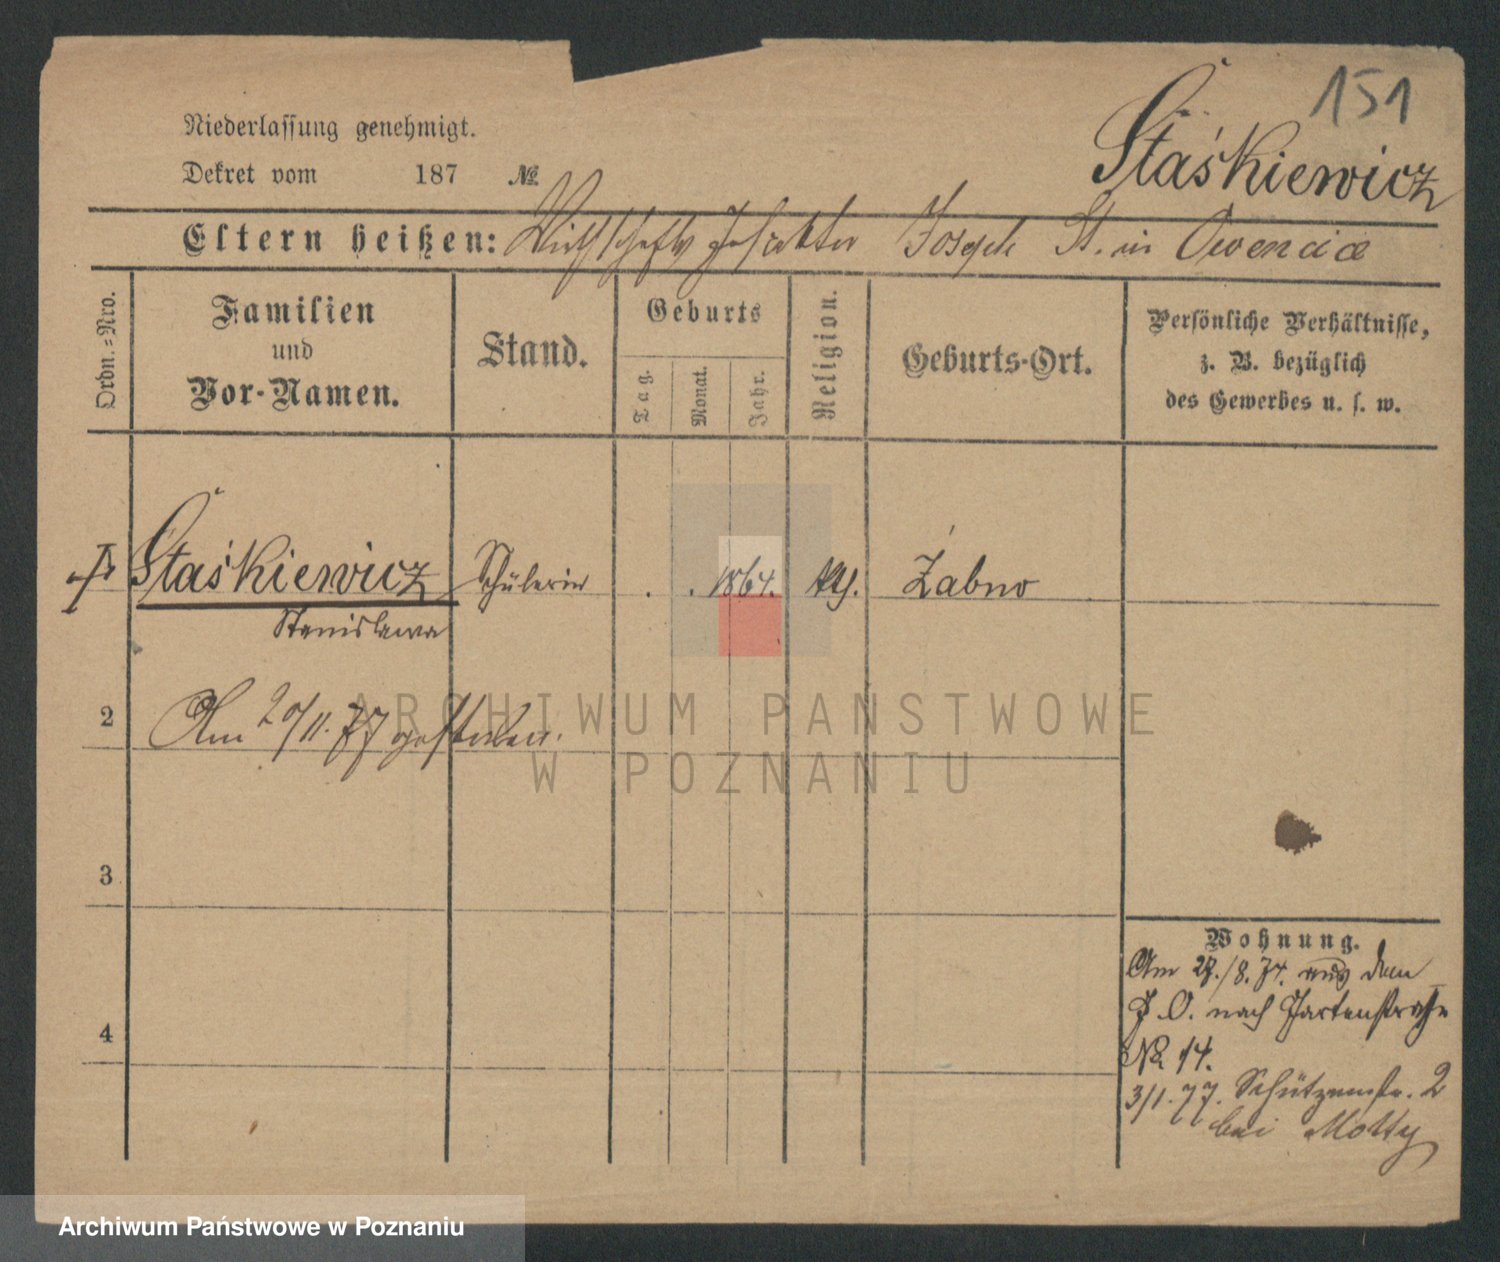 151
Staśkiewicz
Niederlassung genehmigt.
Dekret vom 187 №
Eltern heißen: Wirthschafts Inspektor Joseph St. in Owencice
Ordn.=Nro.
Familien
und
Vor-Namen.
Stand.
Geburts
Tag.
Monat.
Jahr.
Religion.
Geburts-Ort.
Persönliche Verhältnisse,
z. B. bezüglich
des Gewerbes u. s. w.
1 Staśkiewicz Schülerin . . 1864. kth. Żabno
Stanislawa
2 Am 20/11. 77 gestorben.
3
4
Wohnung.
Am 28./8. 74. aus dem
J. O. nach Gartenstraße
No 14.
3/1. 77. Schützenstr. 2
bei Motty
ARCHIWUM PAŃSTWOWE
W POZNANIU
Archiwum Państwowe w Poznaniu